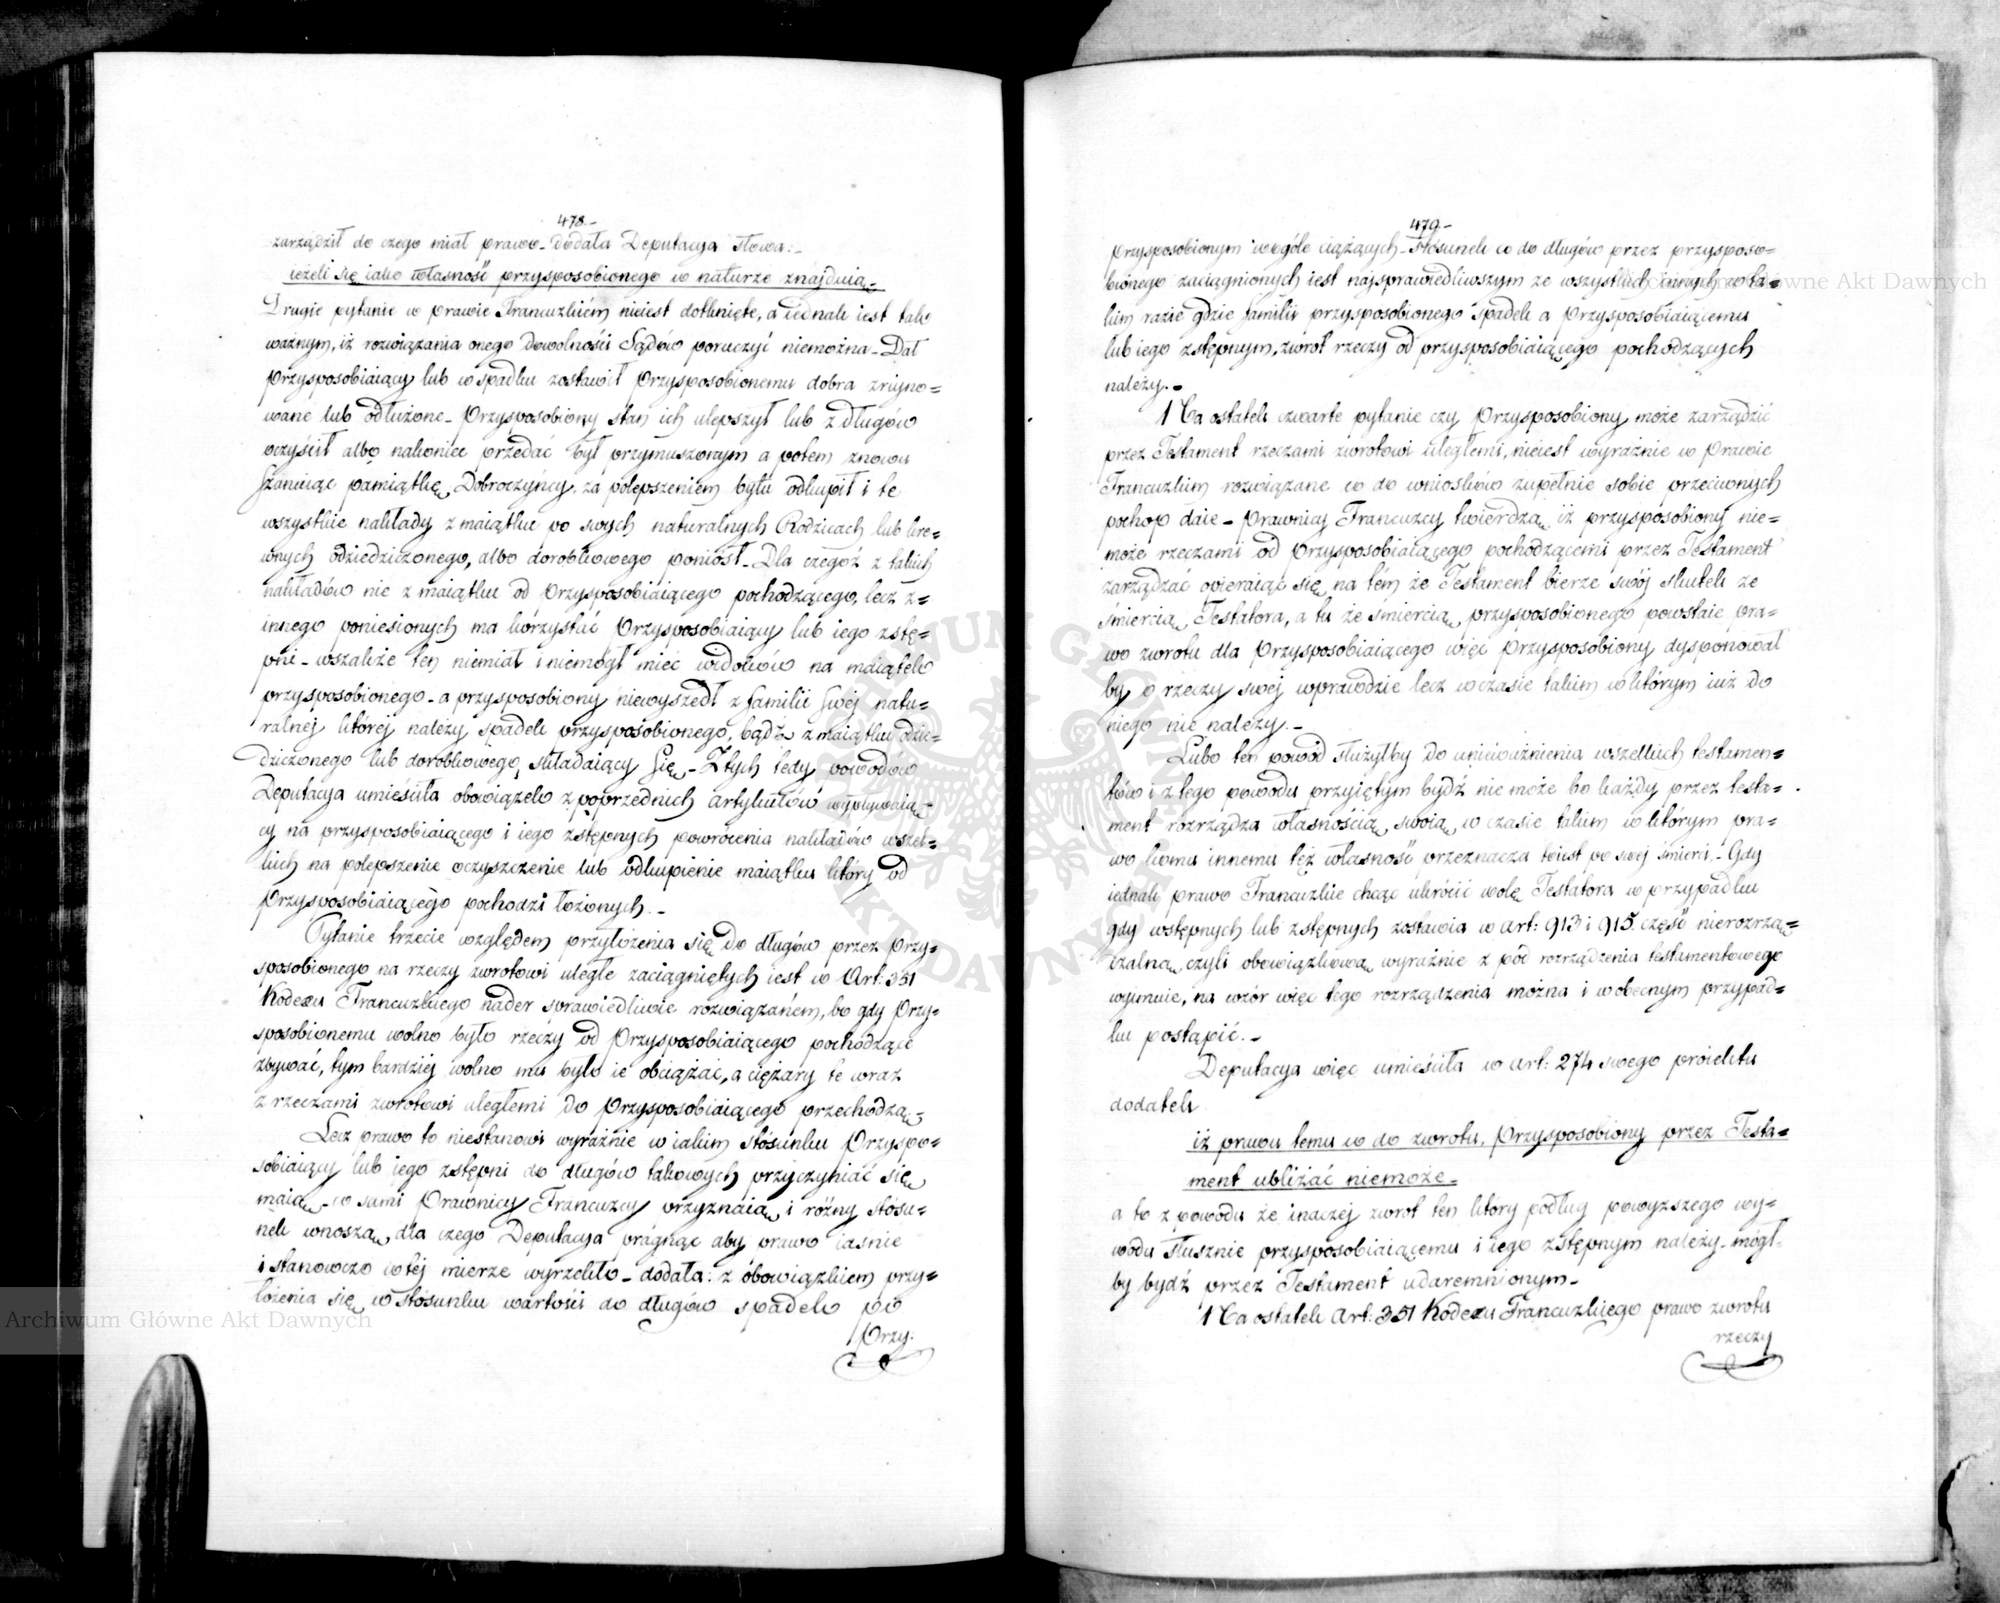 478.-
zarządził do czego miał prawo - dodała Deputacya słowa: -
ieżeli się iako własność przysposobionego w naturze znajduią. -
Drugie pytanie w prawie Francuzkiém nieiest dotknięte, a iednak iest tak
ważnym, iż rozwiązania onego dowolności Sądów poruczyć niemożna - Dał
Przysposobiaiący lub w spadku zostawił Przysposobionemu dobra zruyno=
wane lub odłużone - Przysposobiony stan ich ulepszył lub z długów
oczyścił albo nakoniec przedać był przymuszonym a potem znowu
szanuiąc pamiątkę Dobroczyńcy, za polepszeniem bytu odkupił i te
wszystkie nakłady z maiątku po swych naturalnych Rodzicach lub kre=
wnych odziedziczonego, albo dorobkowego poniósł - Dla czegoż z takich
nakładów nie z maiątku od Przysposobiaiącego pochodzącego, lecz z=
innego poniesionych ma korzystać Przysposobiaiący lub iego zstę=
pni - wszakże ten niemiał i niemógł mieć widoków na maiątek
przysposobionego - a przysposobiony niewyszedł z familii swej natu=
ralnej której należy spadek przysposobionego, bądź z maiątku odzie=
dziczonego lub dorobkowego składaiący się - Z tych tedy powodów
Deputacya umieściła obowiązek z poprzednich artykułów wypływaią=
cy na przysposobiaiącego i iego zstępnych powrócenia nakładów wszel=
kich na polepszenie oczyszczenie lub odkupienie maiątku który od
Przysposobiaiącego pochodzi łożonych. -
Pytanie trzecie względem przyłożenia się do długów przez Przy=
sposobionego na rzeczy zwrotowi uległe zaciągniętych iest w Art: 351
Kodexu Francuzkiego nader sprawiedliwie rozwiązaném, bo gdy Przy=
sposobionemu wolno było rzeczy od Przysposobiaiącego pochodzące
zbywać, tym bardziéj wolno mu było ie obciążać, a ciężary te wraz
z rzeczami zwrotowi uległemi do Przysposobiaiącego przechodzą.
Lecz prawo to niestanowi wyraźnie w iakim stósunku Przyspo=
sobiaiący lub iego zstępni do długów takowych przyczyniać się
maią - co sami Prawnicy Francuzcy przyznaią i różny stósu=
nek wnoszą, dla czego Deputacya pragnąc aby prawo iasnie
i stanowczo w téj mierze wyrzekło - dodała: z obowiązkiem przy=
łożenia się w stósunku wartości do długów spadek po
Przy.
479.-
przysposobionym wogóle ciążących - Stósunek co do długów przez przysposo=
bionego zaciągnionych iest najsprawiedliwszym ze wszystkich innych w ta=
kim razie gdzie familii przysposobionego spadek a Przysposobiaiącemu
lub iego zstępnym, zwrot rzeczy od przysposobiaiącego pochodzących
należy. -
Na ostatek czwarte pytanie czy Przysposobiony może zarządzić
przez Testament rzeczami zwrotowi uległemi, nieiest wyraźnie w Prawie
Francuzkim rozwiązane co do wniosków zupełnie sobie przeciwnych
pochop daie - Prawnicy Francuzcy twierdzą iż przysposobiony nie=
może rzeczami od Przysposobiaiącego pochodzącemi przez Testament
zarządzać opieraiąc się na tém że Testament bierze swój skutek ze
śmiercią Testatora, a tu że śmiercią przysposobionego powstaie pra=
wo zwrotu dla Przysposobiaiącego więc Przysposobiony dysponował
by o rzeczy swej wprawdzie lecz w czasie takim w którym iuż do
niego nie należy. -
Lubo ten powód służyłby do unieważnienia wszelkich testamen=
tów i z tego powodu przyiętym bydź nie może bo każdy przez testa=
ment rozrządza własnością swoią w czasie takim w którym pra=
wo komu innemu téż własność przeznacza toiest po swej śmierci. - Gdy
iednak prawo Francuzkie chcąc ukrócić wolę Testatora w przypadku
gdy wstępnych lub zstępnych zostawia w art: 913 i 915. część nierozrzą=
czalną, czyli obowiązkową wyraźnie z pod rozrządzenia testamentowego
wyimuie, na wzór więc tego rozrządzenia można i w obecnym przypad=
ku postąpić. -
Deputacya więc umieściła w art: 274 swego proiektu
dodatek
iż prawu temu co do zwrotu, Przysposobiony przez Testa=
ment ubliżać niemoże. -
a to z powodu że inaczéj zwrot ten który podług powyższego wy=
wodu słusznie przysposobiaiącemu i iego zstępnym należy - mógł=
by bydź przez Testament udaremnionym -
Na ostatek Art: 351 Kodexu Francuzkiego prawo zwrotu
rzeczy
Archiwum Główne Akt Dawnych
Archiwum Główne Akt Dawnych
ARCHIWUM GŁÓWNE AKT DAWNYCH